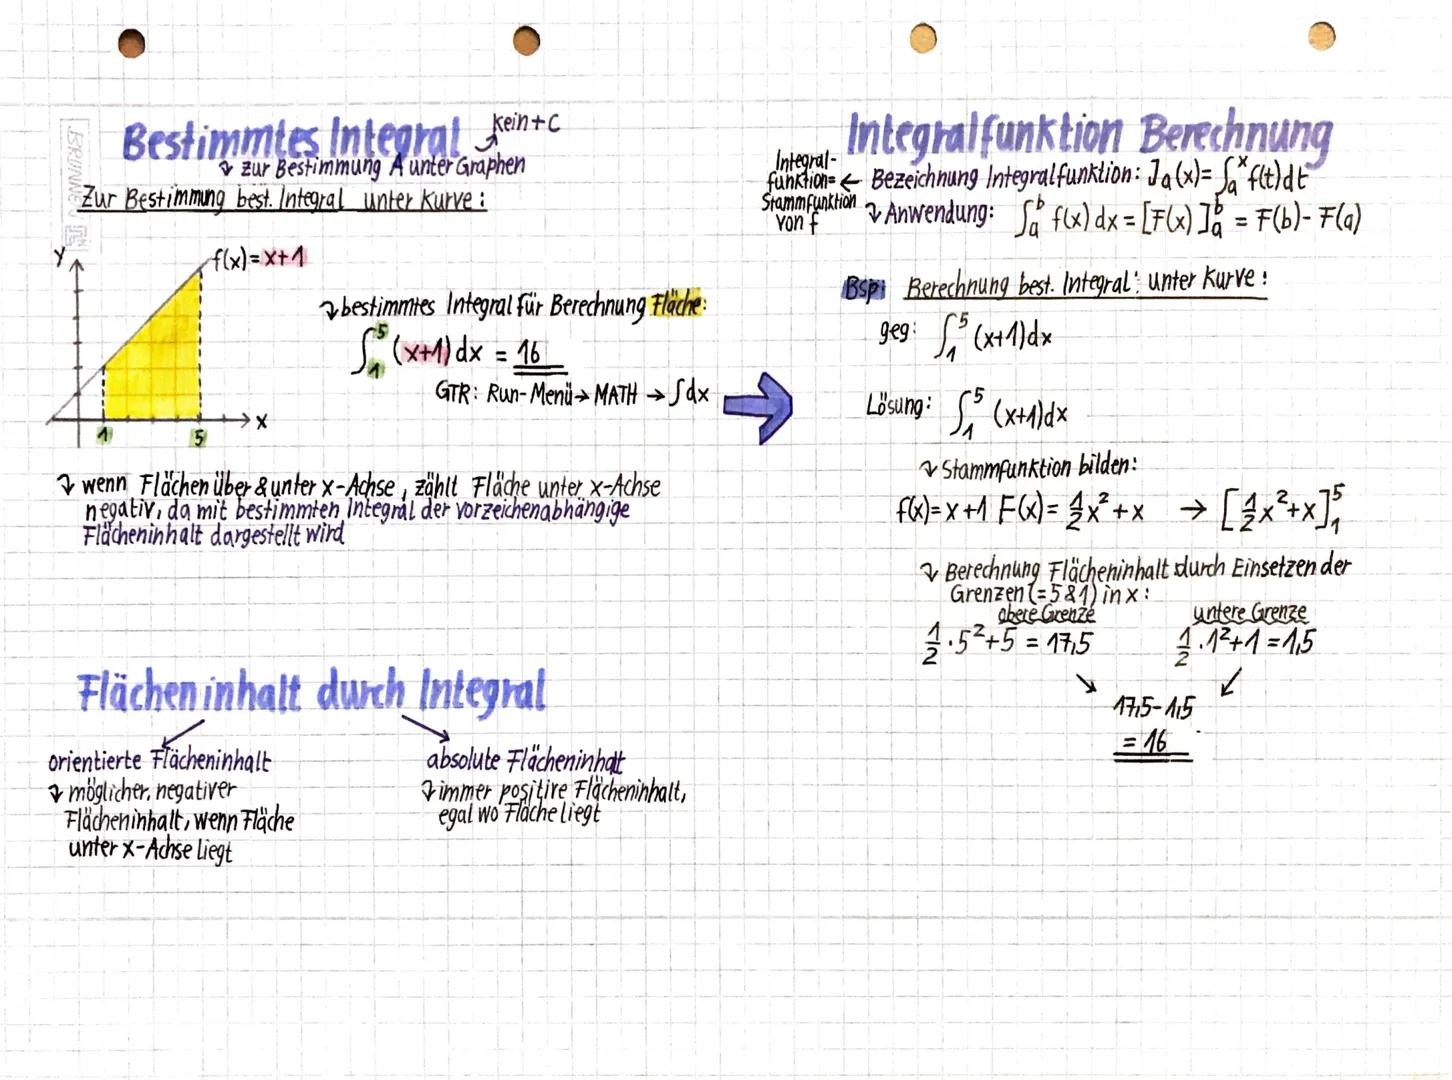 Bestimmtes Integral
kein + C
zur Bestimmung A unter Graphen
Zur Bestimmung best. Integral unter Kurve:
BRUNNEN
y
f(x) = x+1
x
1
5
bestimmtes Integral für Berechnung Fläche:
∫₁⁵ (x+1) dx = 16
GTR: Run-Menü → MATH → ∫dx
wenn Flächen über & unter x-Achse, zählt Fläche unter x-Achse
negativ, da mit bestimmten Integral der vorzeichenabhängige
Flächeninhalt dargestellt wird
Flächeninhalt durch Integral
orientierte Flächeninhalt
möglicher, negativer
Flächeninhalt, wenn Fläche
unter x-Achse liegt
absolute Flächeninhalt
immer positive Flächeninhalt,
egal wo Fläche liegt
Integralfunktion Berechnung
Integral-
funktion=
Stammfunktion
von f
← Bezeichnung Integralfunktion: Jₐ(x) = ∫ₐˣ f(t) dt
Anwendung: ∫ₐᵇ f(x) dx = [F(x)]ₐᵇ = F(b) - F(a)
Bsp: Berechnung best. Integral: unter Kurve:
geg: ∫₁⁵ (x+1)dx
Lösung: ∫₁⁵ (x+1)dx
Stammfunktion bilden:
f(x) = x+1 F(x) = 1/2 x² + x → [1/2 x² + x]₁⁵
Berechnung Flächeninhalt durch Einsetzen der
Grenzen (= 5 & 1) in x:
obere Grenze
untere Grenze
1/2 · 5² + 5 = 17,5
1/2 · 1² + 1 = 1,5
17,5 - 1,5
= 16